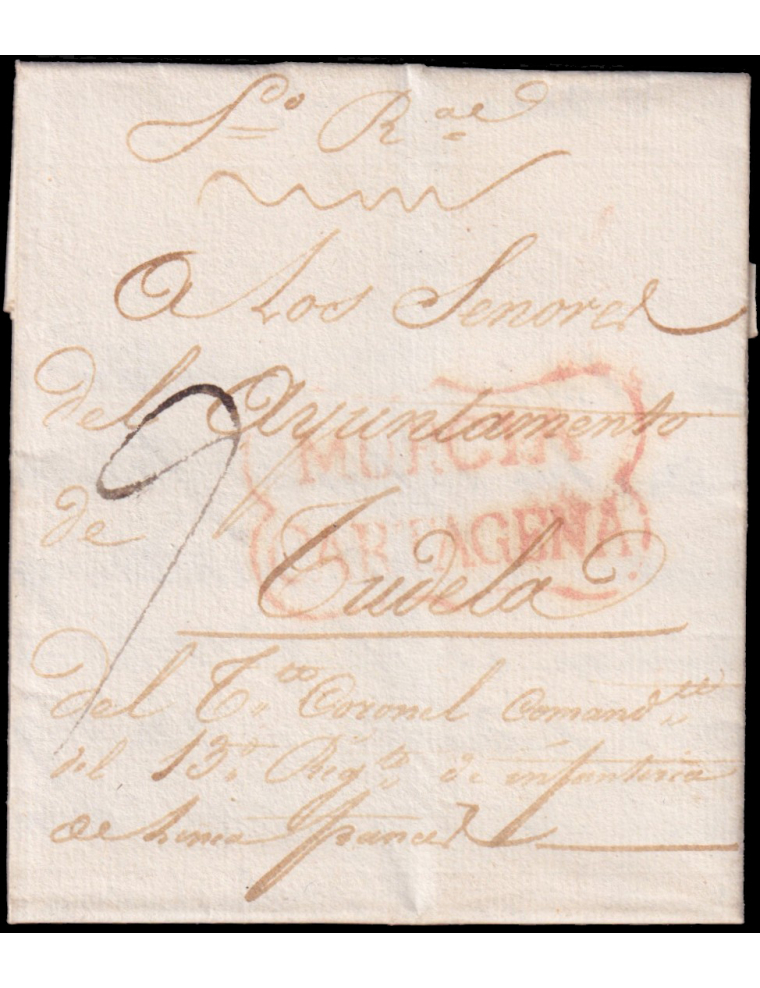 So. Rae.
A Los Señores
del Ayuntamento
de
Tudela
MURCIA
CARTAGENA
9
del T.to Coronel Comand.te
del 13.o Reg.to de infanteria
de Linea frances